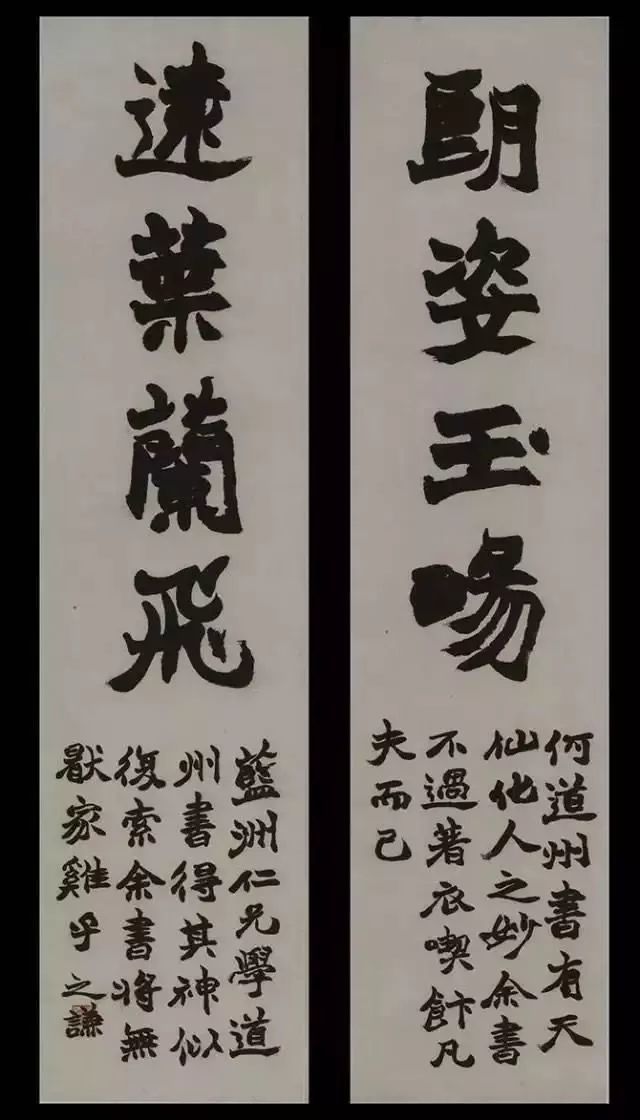 朗姿玉暘
何道州書有天
仙化人之妙余書
不過著衣喫飰凡
夫而已
遠葉蘭飛
藍洲仁兄學道
州書得其神似
復索余書將無
厭家雞乎之謙